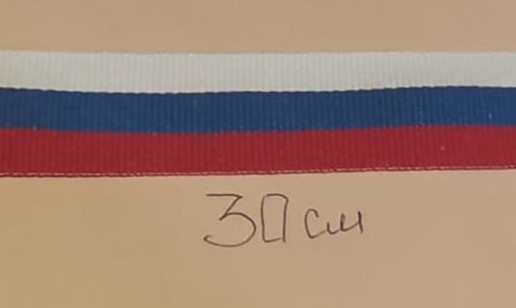 30 см